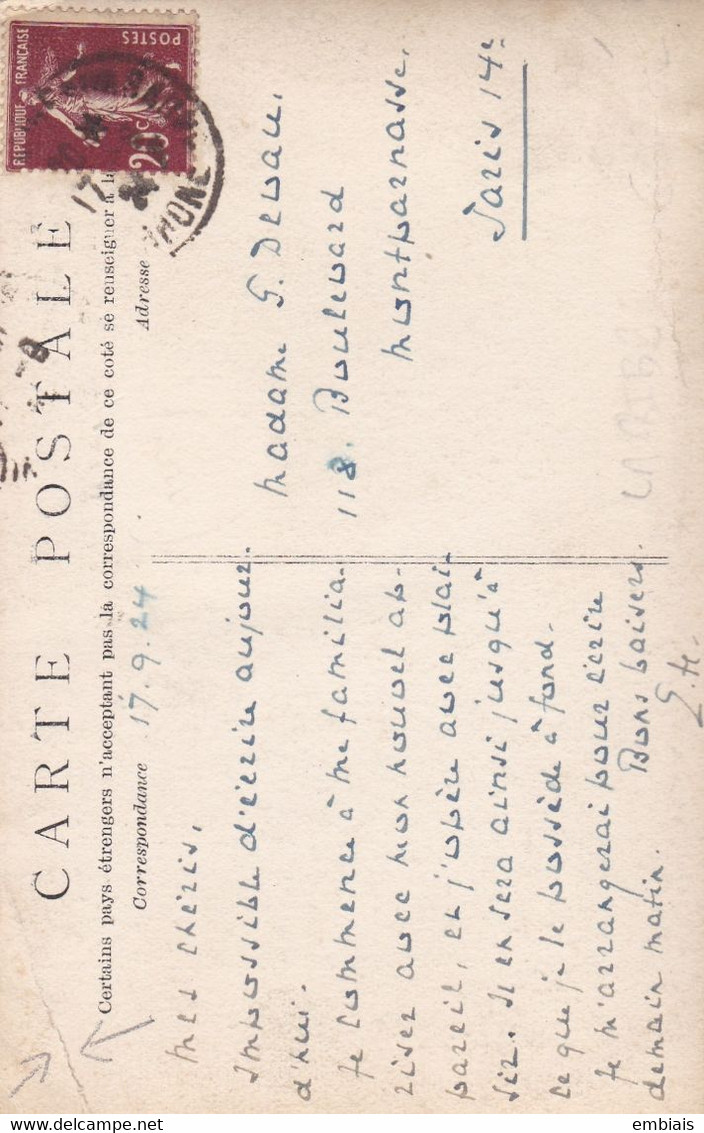 CARTE POSTALE
Certains pays étrengers n'acceptant pas la correspondance de ce coté se renseigner à la
Correspondance
Adresse
REPUBLIQUE FRANÇAISE
POSTES
20c
RHONE
17.9.24
Mes chéris,
Impossible d'écrire aujour-
d'hui.
Je commence à me familia-
riser avec mon nouvel ap-
pareil, et j'opère avec plai-
sir. Il en sera ainsi jusqu'à
ce que je le possède à fond.
Je m'arrangerai pour écrire
demain matin. Bons baisers.
G.H.
Madame G. Dewau.
118. Boulevard
Montparnasse.
Paris 14e
embiais
Delcampe.net